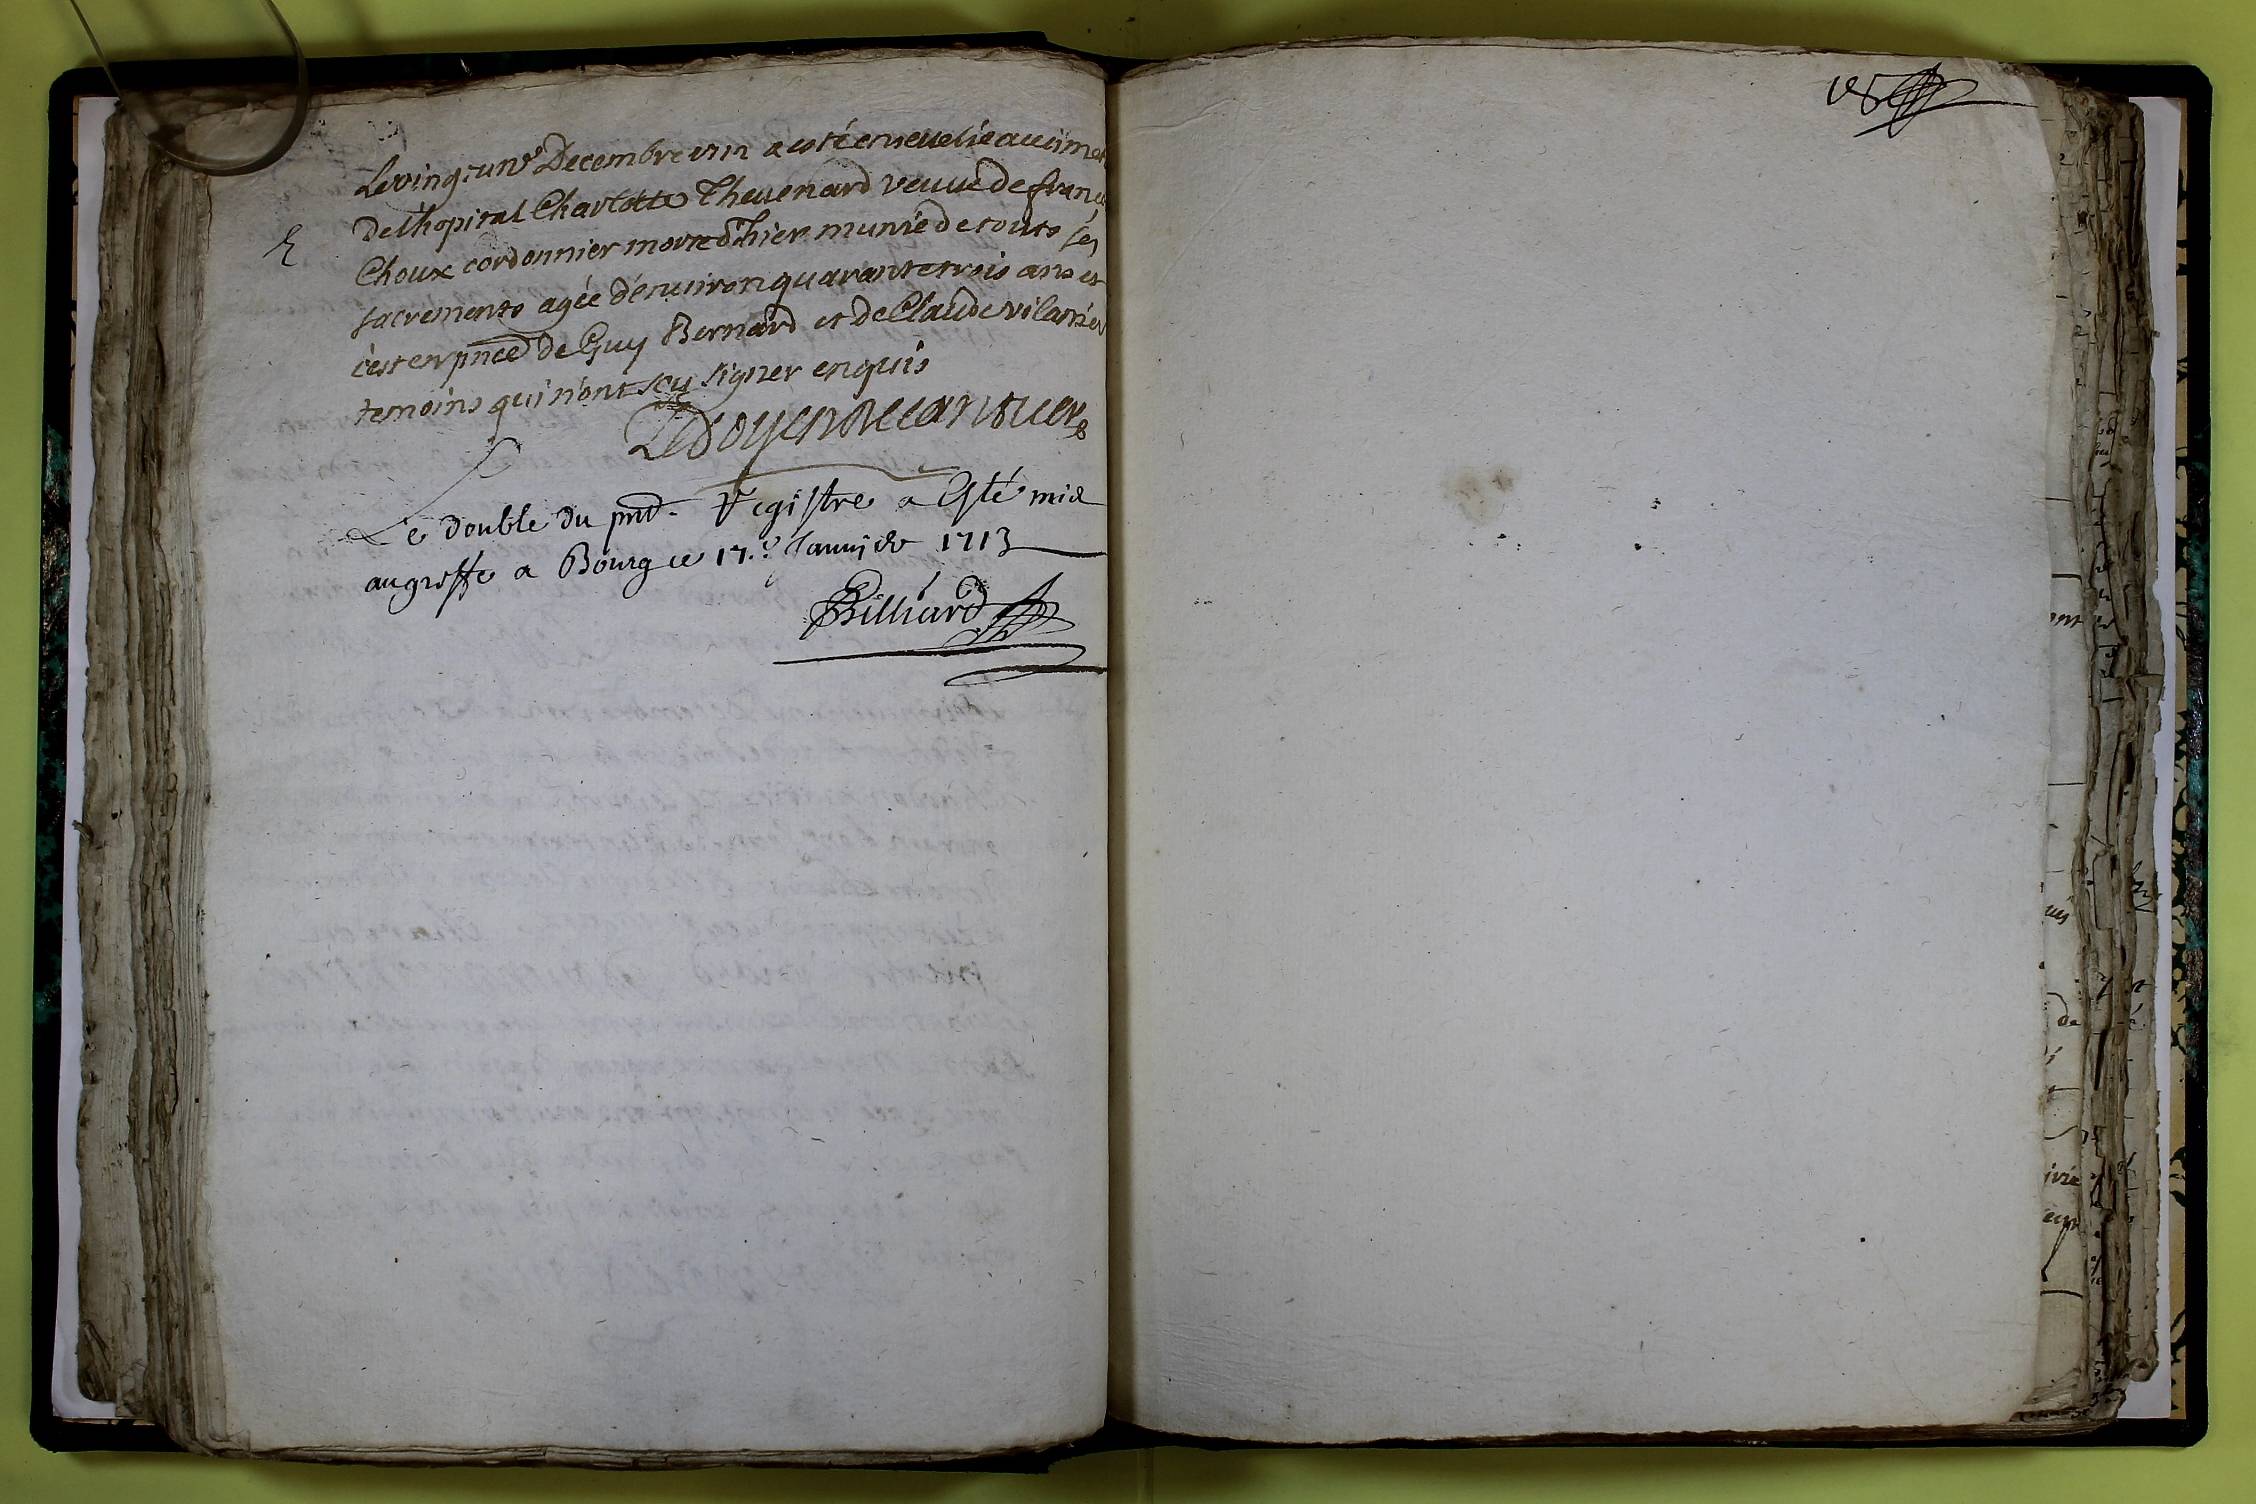 Le vingt un.e Decembre 1712 a esté ensevelie au cime
De lhopital Charlotte Thevenard veuve de franc
Choux cordonnier morte d'hier munie de touts ses
E
sacrements agée d'environ quarante trois ans et
c'est en pnce de Guy Bernard et de Claude vilar
temoins qui n'ont sçu signer enquis
Le double du pnt. Registre a Esté mis
au greffe a Bourg ce 17.e Janvier 1713
Billiard